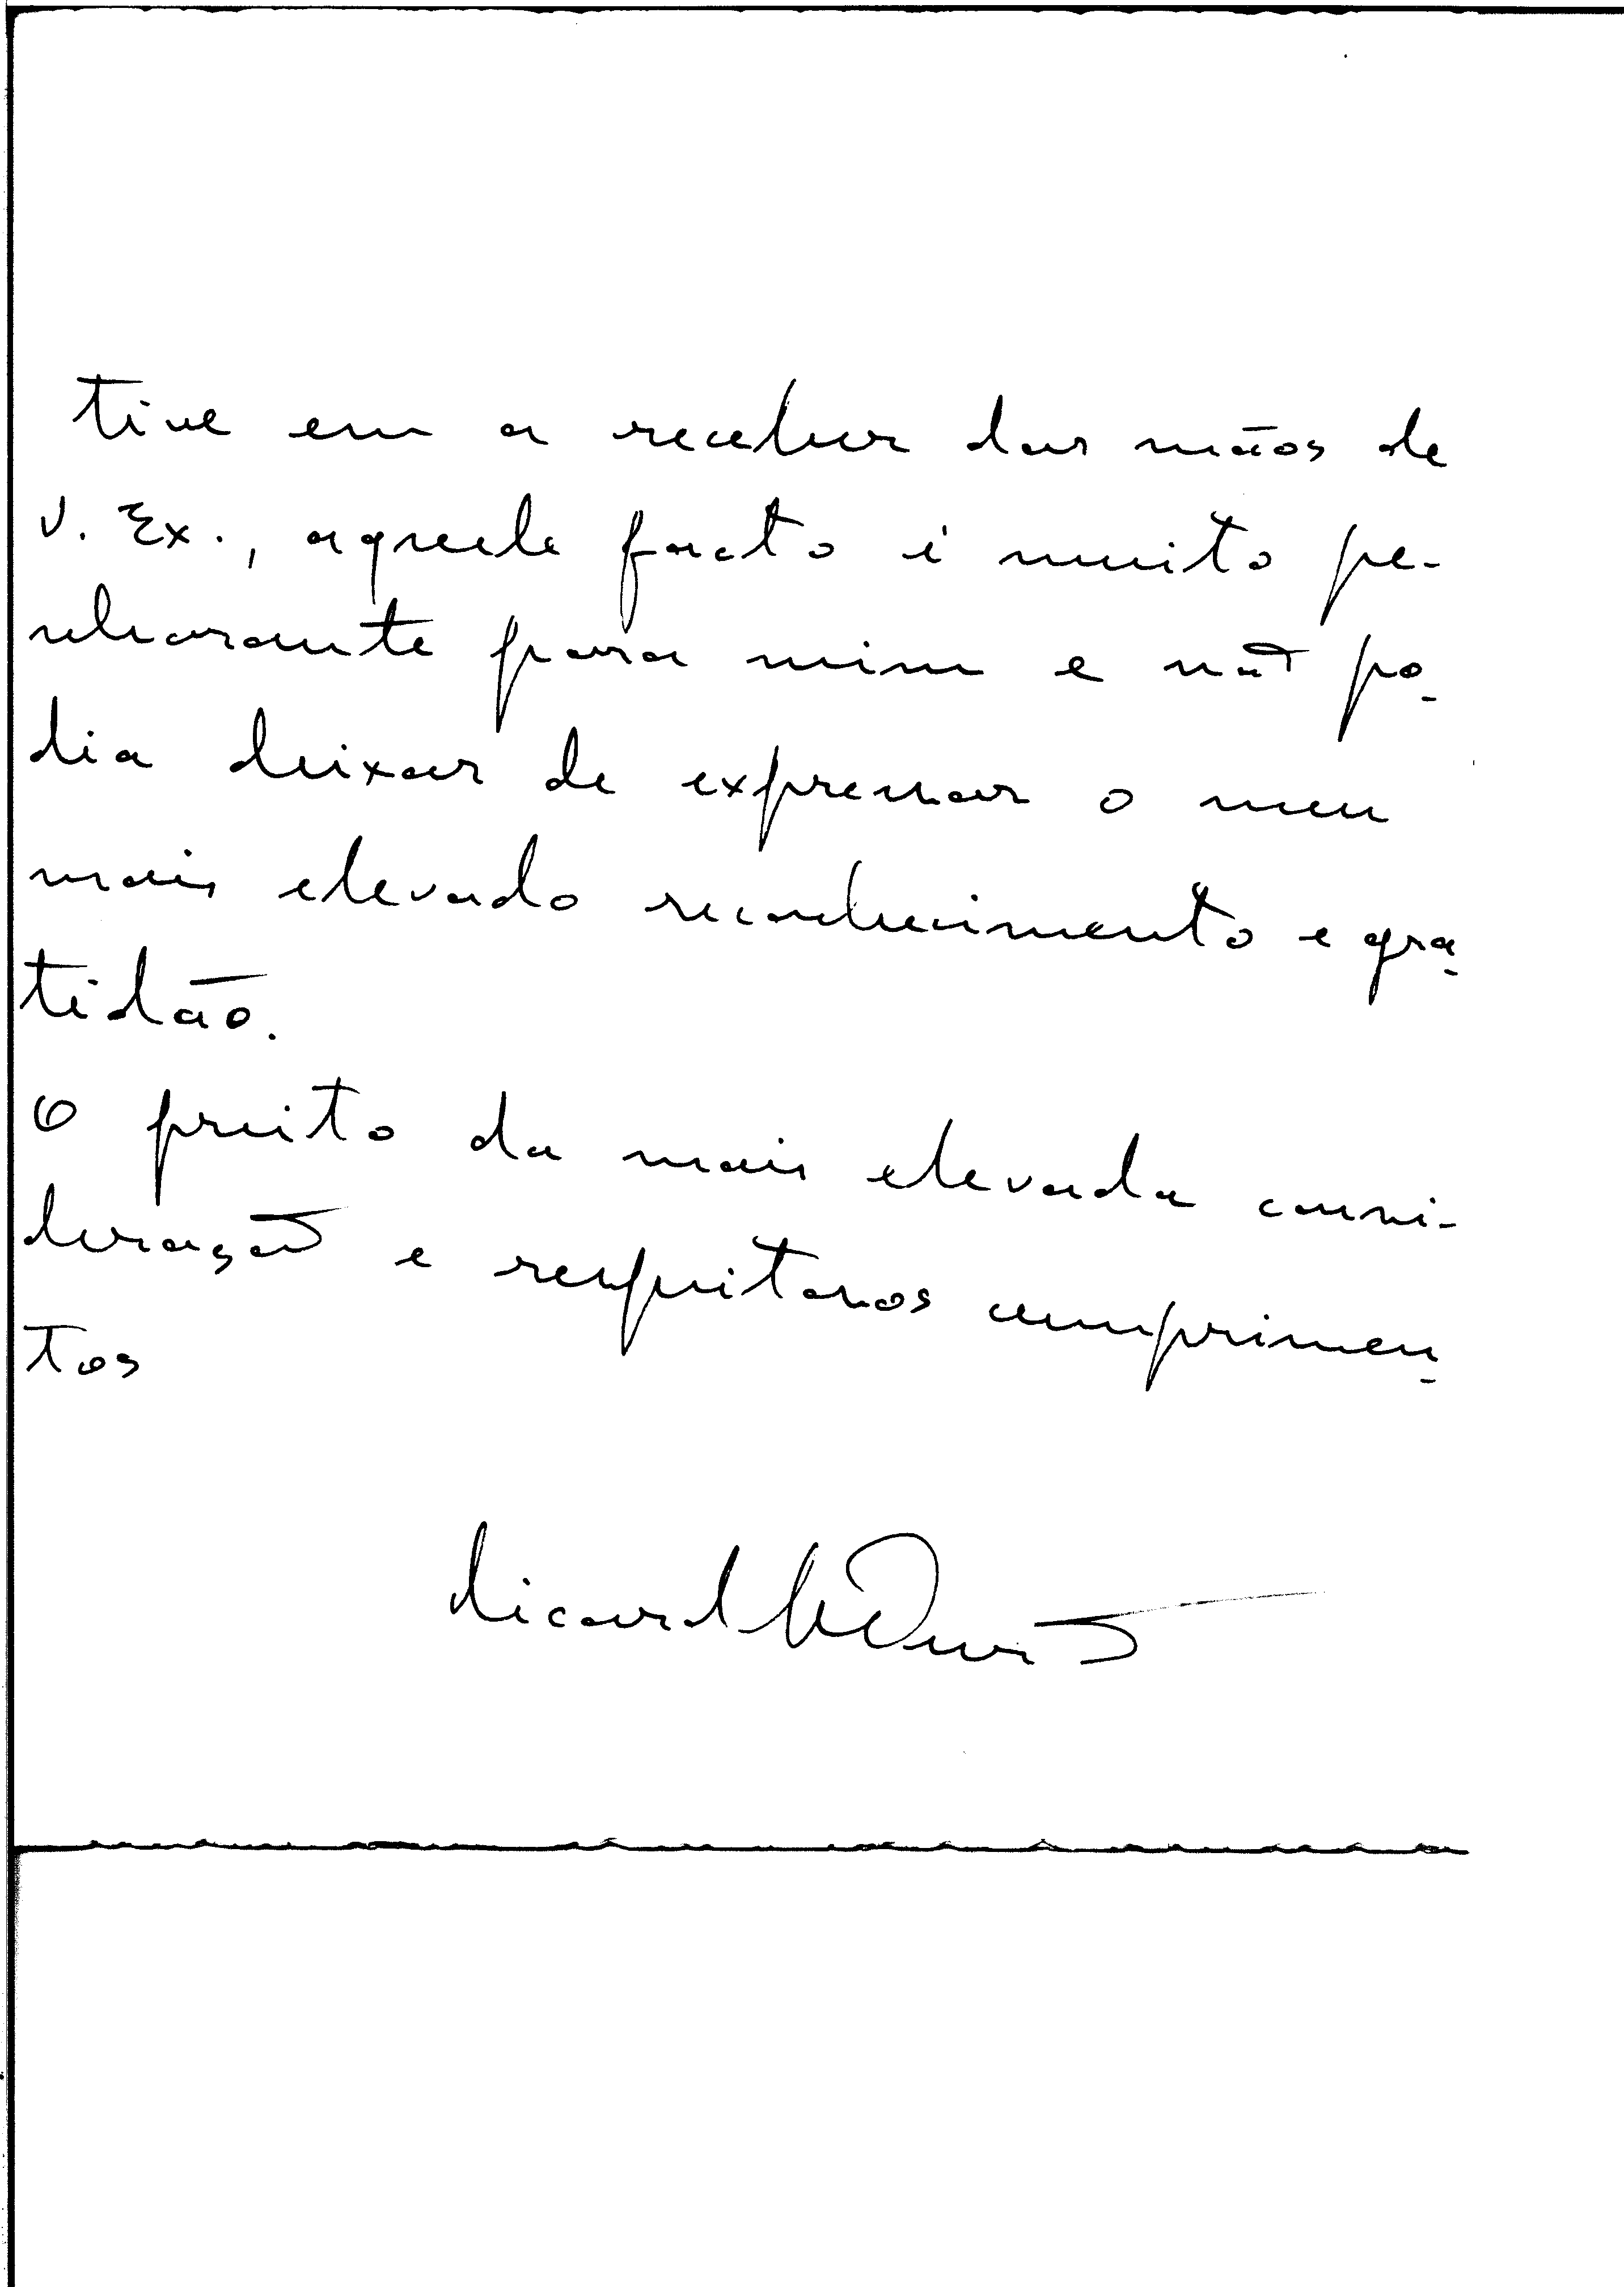 tive em a receber das mãos de
V. Ex., aquele facto é muito pe-
nhorante para mim e não po-
dia deixar de expressar o meu
mais elevado reconhecimento e gra-
tidão.
O preito da mais elevada consi-
deração e respeitosos cumprimen-
tos